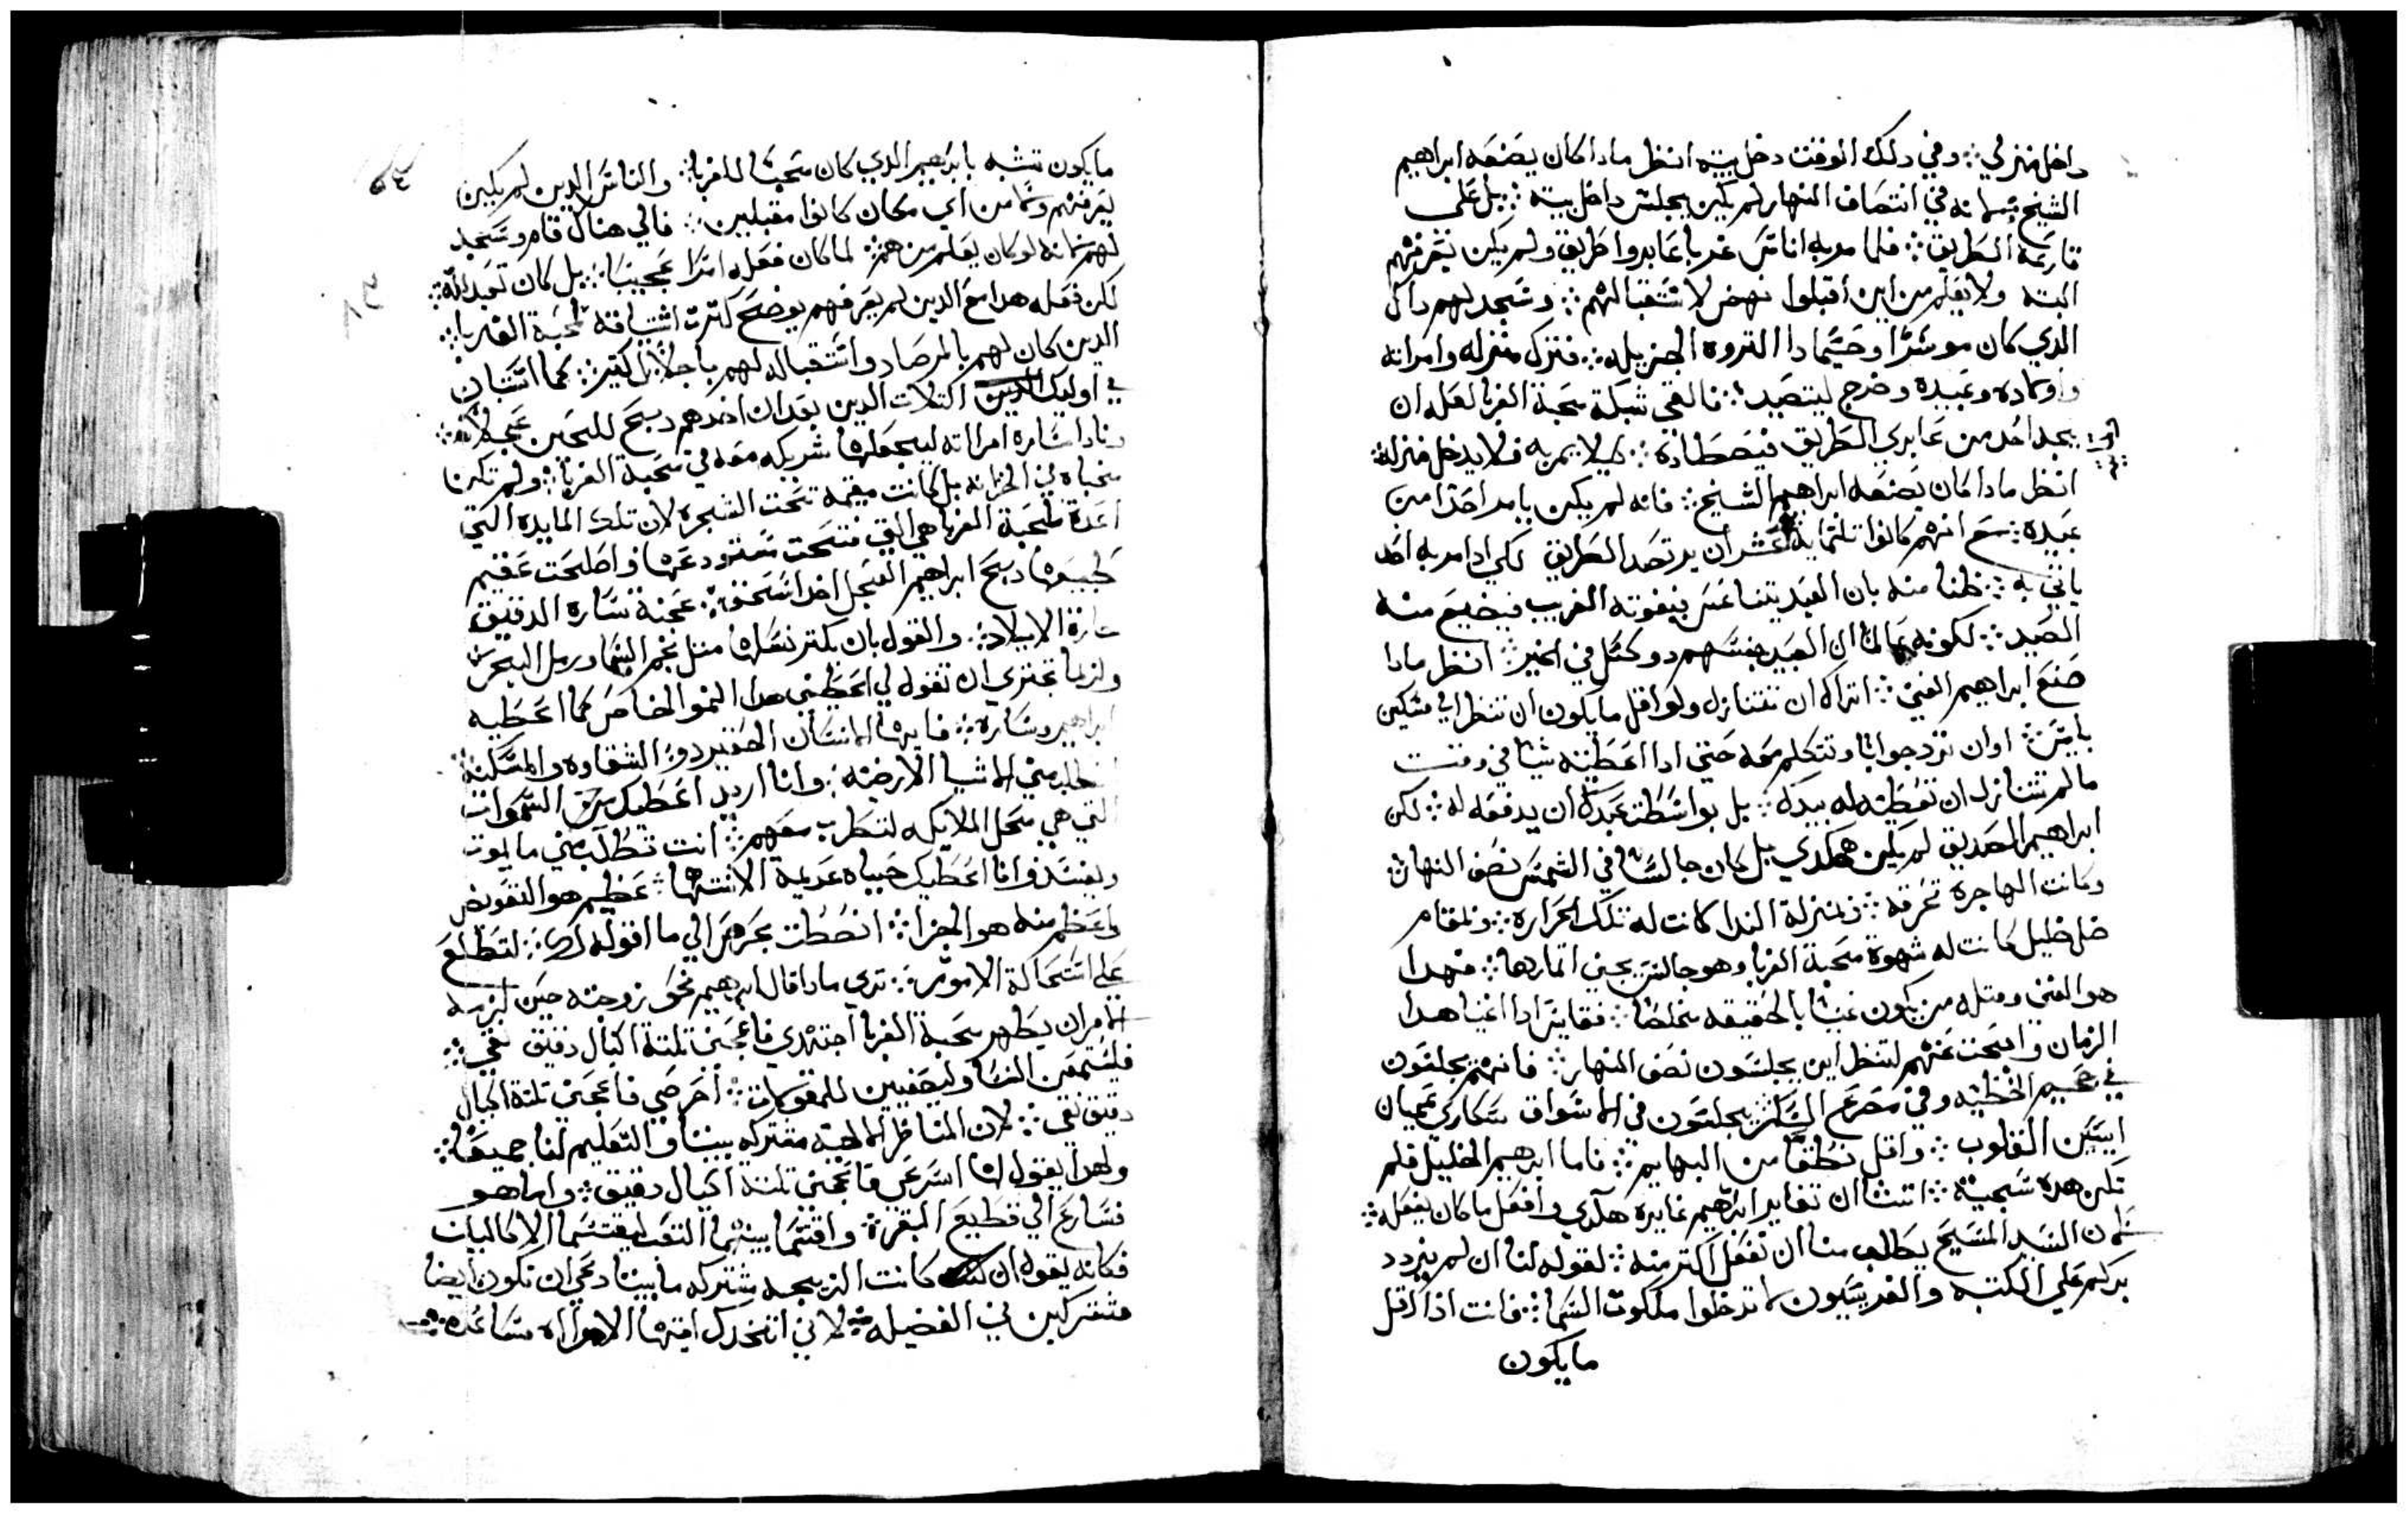 داخل منزلي ፨ وفي دلك الوقت دخل بيته انظر مادا كان يصنعه ابراهيم
الشيخ في انتصاف النهار لم يكن يجلس داخل بيته ፨ بل على
قارعة الطريق ፨ فلما مر به اناس غربا عابروا طريق ولم يكن يعرفهم
البته ولا يعلم من اين اقبلوا نهض لاستقبالهم ፨ وسجد لهم داك
الدي كان موسرًا وحسيما دا التروه الجزيله ፨ فترك منزله وامراته
واولاده وعبيده وخرج ليتصيد ፨ فالقى شبكة محبة الغربا لعله ان
يجد احد من عابري الطريق فيصطاده ፨ ليلا يمر به فلا يدخل منزله ፨
انظر مادا كان يصنعه ابراهيم الشيخ ፨ فانه لم يكن يامر احدًا من
عبيده ፨ مع انهم كانوا تلتمايه عشر ان يرتصد الطريق لكي ادا مر به احد
ياتي به ፨ ظنا منه بان العبد يتناعس فيفوته الغريب فيضيع منه
الصيد ፨ لكونه عالمًا ان العبيد جنسهم دو كسل في الخير ፨ انظر مادا
صنع ابراهيم الغني ፨ اتراك ان تتنازل ولو اقل ما يكون ان تنظر الي مسكين
بايس ፨ او ان ترد جوابًا وتتكلم معه حتى ادا اعطيته شيًا في وقت
ما لم تتنازل ان تعطيه له بيدك ፨ بل بواسطة عبدك ان يدفعه له ፨ لكن
ابراهيم الصديق لم يكن هكدي بل كان جالسًا في الشمس نصف النهار
وكانت الهاجرة تحرقه ፨ فبمنزلة الندا كانت له تلك الحراره ፨ وبمقام
ضل ظليل كانت له شهوة محبة الغربا وهو جالس يجني اتمارها ፨ فهدا
هو الغني ومتله من يكون غنيًا بالحقيقه مخلصًا ፨ فقايس ادا اغنيا هدا
الزمان وابحت عنهم لتنظر اين يجلسون نصف النهار ፨ فانهم يجلسون
في جحيم الخطيه وفي مصرع السكر يجلسون في الاسواق سكاري عميان
ايبسين القلوب ፨ واقل نطقًا من البهايم ፨ فاما ابرهيم الخليل فلم
تكن هده سجيته ፨ اتشا ان تغاير ابرهيم غايره هكدي وافعل ما كان يفعله ፨
لان السيد المسيح يطالب منا ان نفعل اكتر منه ፨ لقوله لنا ان لم يزدد
بركم علي الكتبه والفريسيون لا تدخلوا ملكوت السما ፨ فانت ادًا اقل
ما يكون
ما يكون تتشبه بابرهيم الدي كان محبًا للغربا ፨ والناس الدين لم يكن
يعرفهم ولا من اي مكان كانوا مقبلين ፨ فالي هناك قام وسجد
لهم لانه لو كان يعلم من هم ፨ لما كان فعله امرًا عجيبًا ፨ بل كان تعبد الله ፨
لكن فعله هدا مع الدين لم يعرفهم يوضح كترت اشتياقه لمحبة الغربا ፨
الدين كان لهم بالمرصاد واستقباله لهم باجلال كتير ፨ كما استبان
في اوليك التلات الدين بعد ان اخدهم دبح للحين عجلًا ፨
ونادا ساره امراته ليجعلها شريكه معه في محبة الغربا ፨ ولم تكن
مخباه في الخزانه بل كانت مقيمه تحت الشجره لان تلك المايده التي
اعدت لمحبة الغربا هي التي فتحت مستودعها واصلحت عقيم
طبيعتها دبح ابراهيم العجل اخد اسحق ፨ عجنة ساره الدقيق
الايلاد ፨ والقول بان يكتر نسلها متل نجم السما ورمل البحر
ولربما تجتري ان تقول لي اعطيني هدا النمو الخاص كما اعطيه
ابراهيم وساره ፨ فايها الانسان الحقير دو الشقاوه والمسكنة
تطلب مني الاشيا الارضيه ፨ وانا اريد اعطيك السموات
التي هي محل الملايكه لتطرب معهم ፨ انت تطلب مني ما يموت
ويفسد وانا اعطيك حياه عديمة الانتها ፨ عظيم هو التعويض
واعظم منه هو الجزا ፨ انصت بحرص الي ما اقوله لك ፨ لتطلع
علي استحالة الامور ፨ تري مادا قال ابرهيم نحو زوجته حين لزمه
الامر ان يظهر محبة الغربا اجتهدي فاعجني تلتة اكيال دقيق نقي ፨
فليستمعن النسا وليصغين للمقولات ፨ احرصي فاعجني تلتة اكيال
دقيق نقي ፨ لان المناظر الالهيه مشتركه بيننا والتعليم لنا جميعًا ፨
ولهدا يقول لها اسرعي فاعجني تلتة اكيال دقيق ፨ واما هو
فسارع الي قطيع البقر ፨ واقتسما بينهما التعب ليقتسما الاكاليل
فكانه يقول ان كانت الزيجه مشتركه ما بيننا دعي ان نكون ايضا
مشتركين في الفضيله ፨ لاني اتخدك ايتها الامراه مساعده ፨